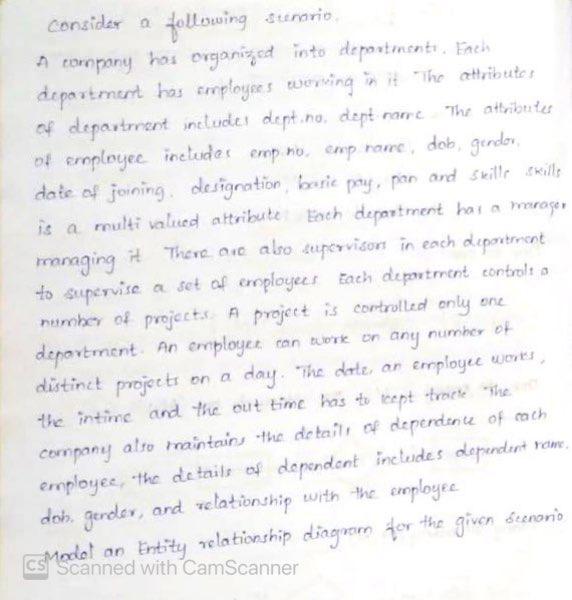 Consider a following scenario.
A company has organized into departments. Each
department has employees working in it The attributes
of department includes dept.no, dept name. The attributes
of employee includes emp.no, emp name, dob, gender,
date of joining, designation, basic pay, pan and skills skills
is a multi valued attribute. Each department has a manager
managing it There are also supervisors in each department
to supervise a set of employees Each department controls a
number of projects. A project is controlled only one
department. An employee can work on any number of
distinct projects on a day. The date, an employee works,
the intime and the out time has to kept track The
company also maintains the details of dependence of each
employee, the details of dependent includes dependent name,
dob, gender, and relationship with the employee
Model an Entity relationship diagram for the given scenario
CS Scanned with CamScanner